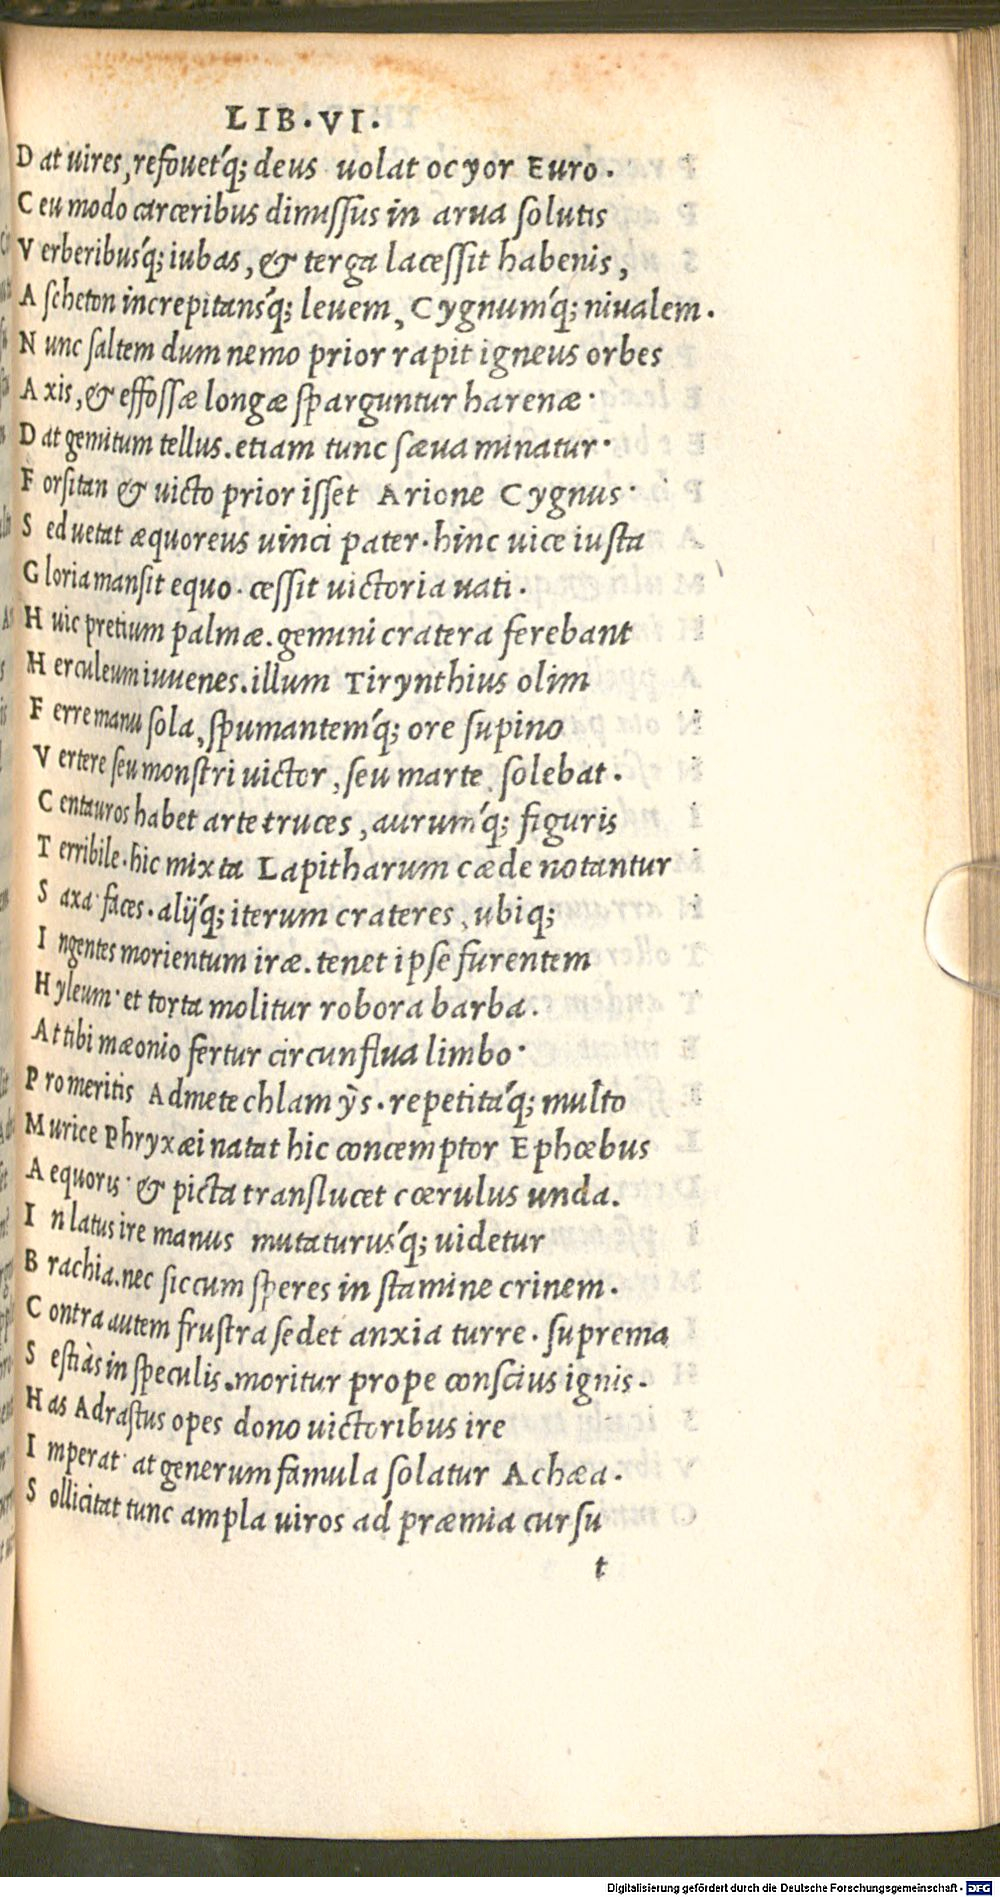 LIB.VI.
Dat uires, refouetq́; deus uolat ocyor Euro.
Ceu modo carceribus dimissus in arua solutis
Verberibusq́; iubas, & terga lacessit habenis,
Ascheton increpitansq́; leuem, Cygnumq́; niualem.
Nunc saltem dum nemo prior rapit igneus orbes
Axis, & effossæ longæ sparguntur harenæ.
Dat gemitum tellus. etiam tunc sæua minatur.
Forsitan & uicto prior isset Arione Cygnus.
Sed uetat æquoreus uinci pater. hinc uice iusta
Gloria mansit equo. cessit uictoria uati.
Huic pretium palmæ. gemini cratera ferebant
Herculeum iuuenes. illum Tirynthius olim
Ferre manu sola, spumantemq́; ore supino
Vertere seu monstri uictor, seu marte solebat.
Centauros habet arte truces, aurumq́; figuris
Terribile. hic mixta Lapitharum cæde notantur
Saxa. faces. alijq́; iterum crateres, ubiq;
Ingentes morientum iræ. tenet ipse furentem
Hyleum. et torta molitur robora barba.
At tibi mæonio fertur circunflua limbo.
Pro meritis Admete chlamẏs. repetitaq́; multo
Murice Phryxæi natat hic concemptor Ephœbus
Aequoris. & picta translucet cœrulus unda.
In latus ire manus mutaturusq́; uidetur
Brachia. nec siccum speres in stamine crinem.
Contra autem frustra sedet anxia turre. suprema
Sestiàs in speculis. moritur prope conscius ignis.
Has Adrastus opes dono uictoribus ire
Imperat. at generum famula solatur Achæa.
Sollicitat tunc ampla uiros ad præmia cursu
t
Digitalisierung gefördert durch die Deutsche Forschungsgemeinschaft - DFG